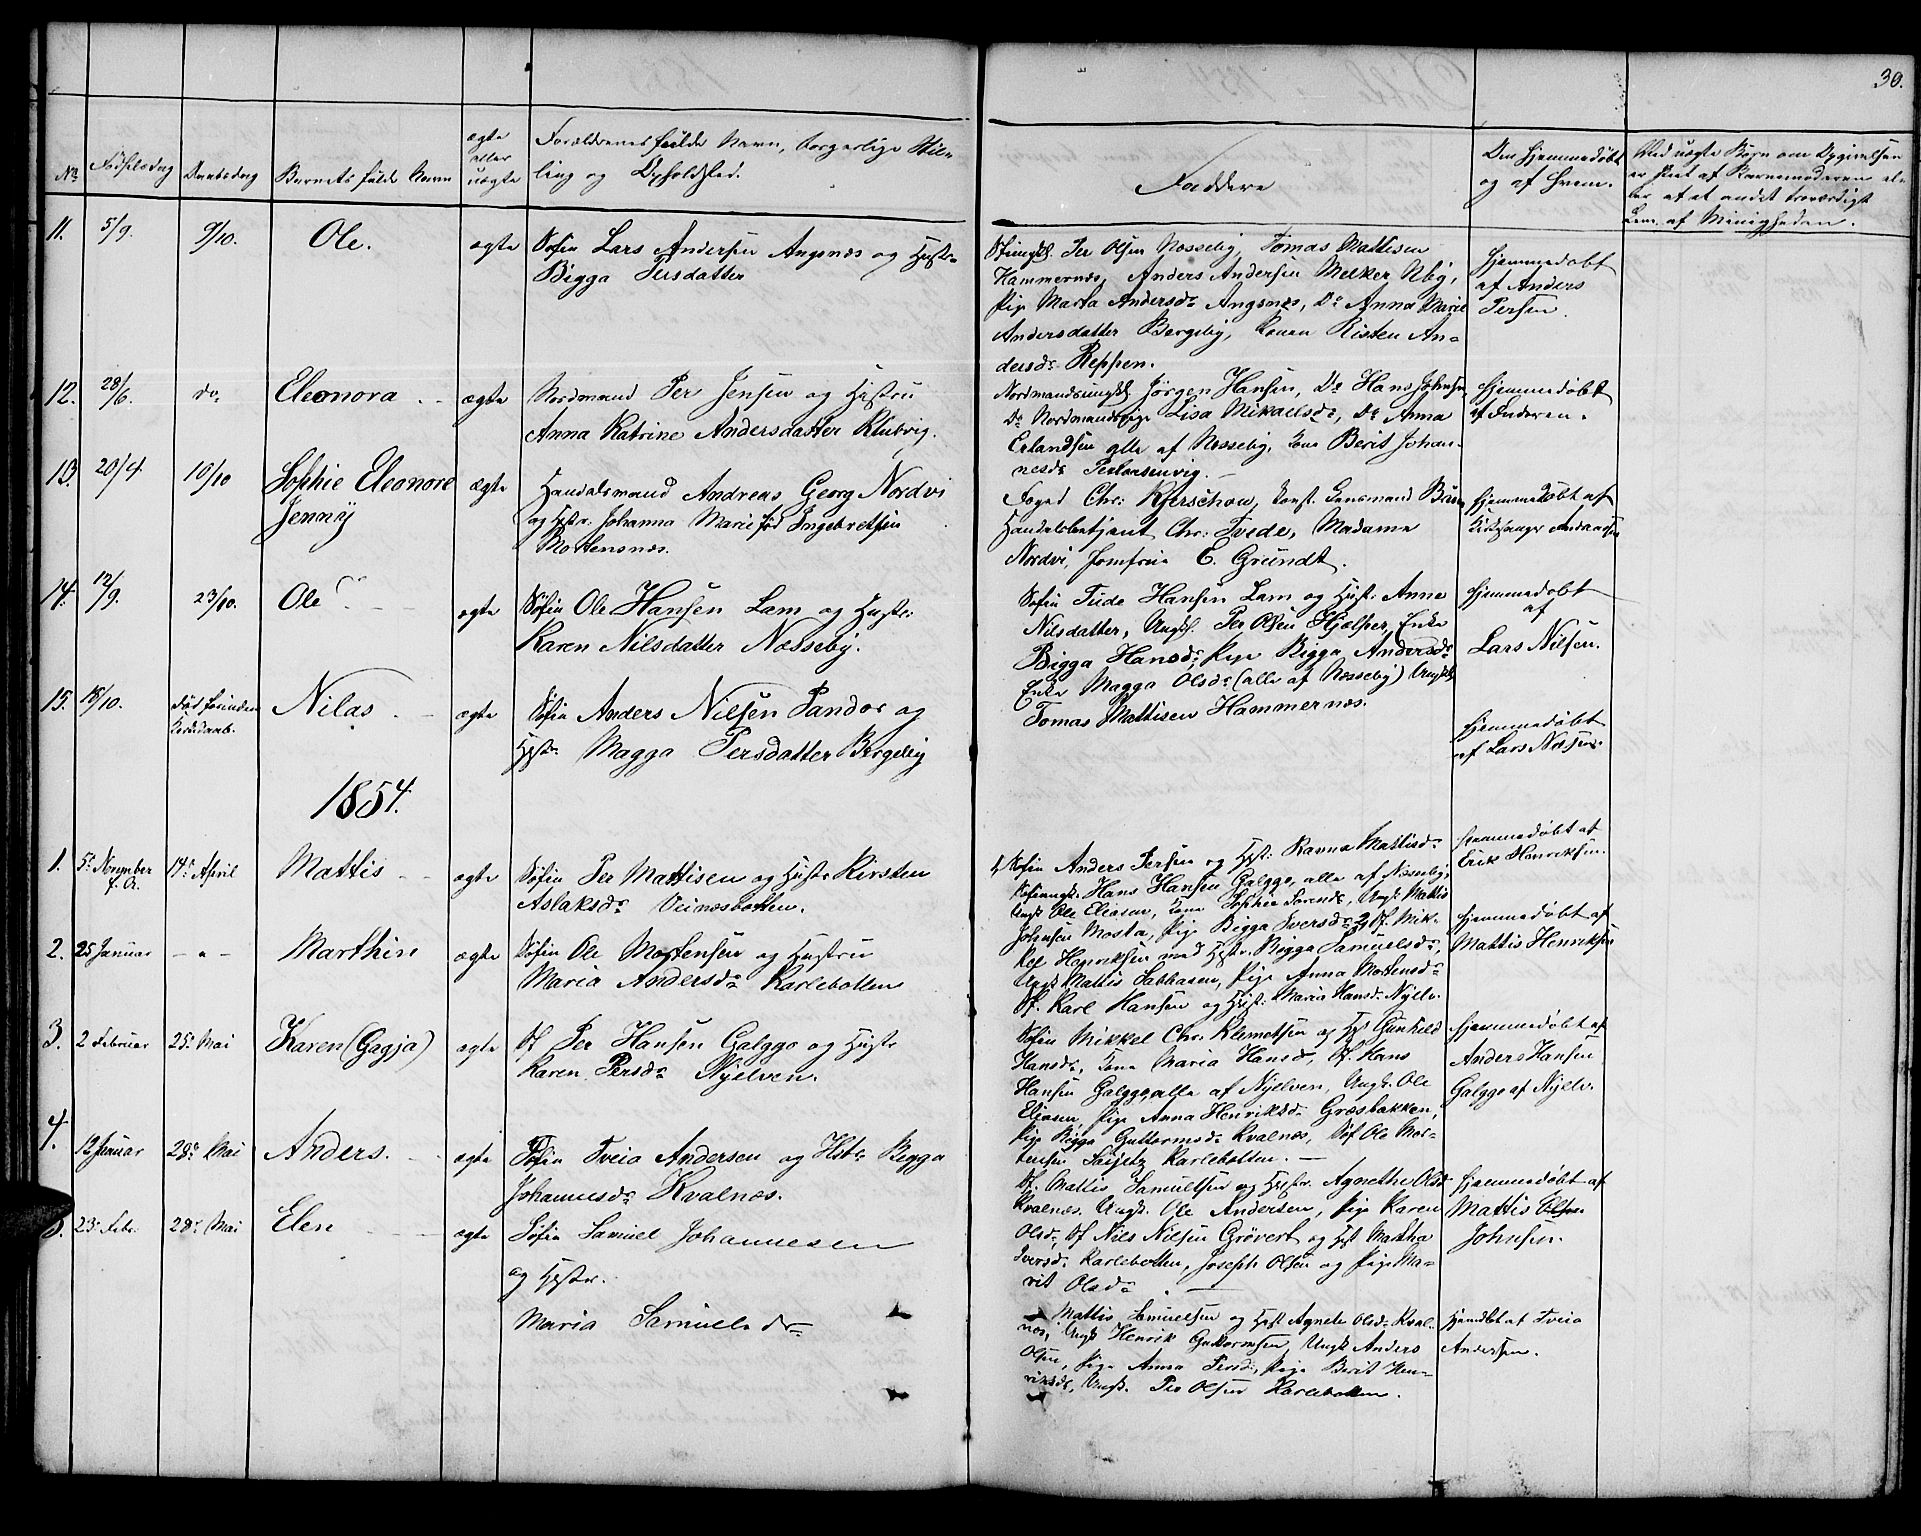 30.
No
Fødselsdag
Daabsdag
Barnets fulde Navn
ægte
eller
uægte
Forældrenes fulde Navn, borgerlige Stil-
ling og Opholdsted.
Faddere
Om hjemmedøbt
og af hvem.
Ved uægte Børn om Opgivelsen
er skeet af Barnemoderen el-
ler af et andet troværdigt
Lem af Menigheden.
11. 5/9. 9/10. Ole. ægte Søfin Lars Andersen Angsnæs og Hustr.
Bigga Persdatter
Per Olsen Næsseby, Tomas Mattisen
Hammernæs, Anders Andersen Melker Nby,
Pige Marta Andersdr Angsnæs, Do Anna Marie
Andersdatter Bergeby, Konen Kisten An-
dersdr Reppen.
Hjemmedøbt
af Anders
Persen.
12. 28/6. do. Eleonora ægte Nordmand Per Jensen og Hustru
Anna Katrine Andersdatter Klubvig.
Nordmandsungk. Jörgen Hansen, Do Hans Johnsen,
Do Nordmandspige Lisa Mikaelsdr, Do Anna
Erlandsen alle af Næsseby, Kone Berit Johan-
nesdr
Hjemmedøbt
af
13. 20/4. 10/10 Sophie Eleonore
Jenny
ægte Handelsmand Andreas Georg Nordvi
og Hstr. Johanna Marie fød Ingebretsen
Mortensnæs.
Foged Chr: Kjerschow, Const. Lensmand
Handelsbetjent Chr: Tvede, Madame
Nordvi, Jomfrue C. Grundt.
Hjemmedøbt af
Kirkesanger
14. 12/9. 23/10. Ole ægte Søfin Ole Hansen Lam og Hustr.
Karen Nilsdatter Næsseby.
Søfin Tude Hansen Lam og Hust. Anne
Nilsdatter, Ungk. Per Olsen Hjælper, Enke
Bigga Hansdr, Pige Bigga Andersdr
Enke Magga Olsdr (alle af Næsseby) Ungk.
Tomas Mattisen Hammernæs.
Hjemmedøbt
af
Lars Nilsen.
15. 18/10. Død forinden
Kirkedaab.
Nilas ægte Søfin Anders Nilsen Pandor og
Hstr. Magga Persdatter Bergeby
Hjemmedøbt
af Lars Nilsen.
1854.
1. 5te November
f. A.
14de April Mattis ægte Søfin Per Mattisen og Hustr. Kirsten
Aslaksdr Veinæsbotten.
1, Søfin Anders Persen og Hst: Ravna Mattisdr
Hans Hansen Galggo, alle af Næsseby,
Ungk. Ole Eliasen, Kone Sophie Sorensdr, Ungk. Mattis
Johnsen Mosta, Pige Bigga Iversdr
Hjemmedøbt af
Erik Henriksen.
2. 25 Januar - " - Marthin ægte Søfin Ole Mortensen og Hustru
Maria Andersdr Karlebotten
2, Sf. Mik-
kel Henriksen med Hstr. Bigga Samuelsdr,
Ungk Mattis Sabbasen, Pige Anna Mortensdr
Sf. Karl Hansen og Hst: Maria Hansdr Nyelv.
Hjemmedøbt af
Mattis Henriksen
3. 2 Februar 25de Mai Karen (Gagja) ægte Sf Per Hansen Galggo og Hustr
Karen Persdr Nyelven.
Søfin Mikkel Chr. Klemetsen og Hst Gunhild
Hansdr, Kone Maria Hansdr, Sf. Hans
Hansen Galggo, alle af Nyelven, Ungk. Ole
Eliasen, Pige Anna Henriksdr Græsbakken,
Pige Bigga Guttormsdr Kvalnæs, Søf Ole Mor-
tensen Karlebotten.
Hjemmedøbt af
Anders Hansen
Galggo af Nyelv.
4. 12 Januar 28de Mai Anders. ægte Søfin Tveio Andersen og Hstr Begga
Johannesdr Kvalnæs.
Sf. Mattis Samuelsen og Hustr. Agnethe Olsdr
Kvalnæs. Ungk. Ole Andersen, Pige Karen
Olsdr, Sf Nils Nilsen Grövert og Hst Martha
Iversdr Karlebotten, Joseph Olsen og Pige Ma-
rit Olsdr.
Hjemmedøbt af
Mattis Olsen
Johnsen.
5. 23de Febr. 28de Mai Elen ægte Søfin Samuel Johannesen
og Hstr.
Maria Samuelsdr
Mattis Samuelsen og Hst Agnete Olsdr Kval-
næs, Ungk Henrik Guttormsen, Ungk Anders
Olsen, Pige Anna Persdr, Pige Berit Hen-
riksdr, Ungk. Per Olsen Karlebotten.
Hjemdbt af Tveio
Andersen.